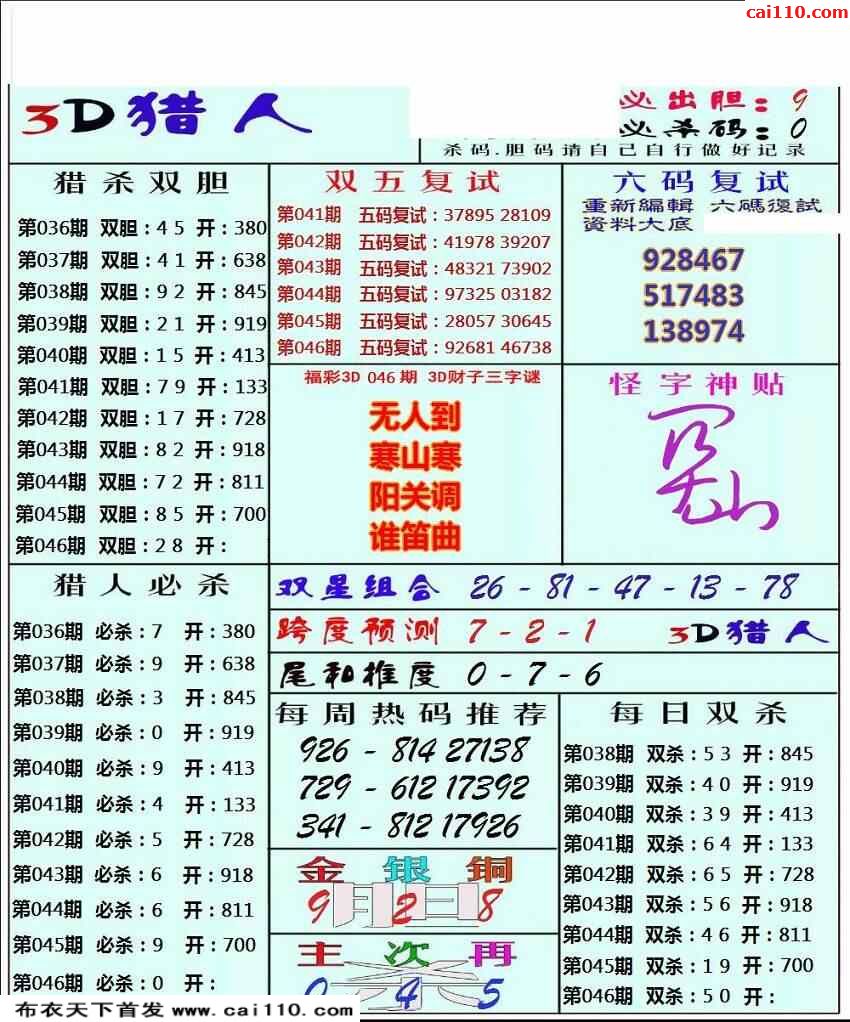 cai110.com
3D猎人
必出胆：9
必杀码：0
杀码.胆码请自己自行做好记录
猎杀双胆
第036期 双胆：45 开：380
第037期 双胆：41 开：638
第038期 双胆：92 开：845
第039期 双胆：21 开：919
第040期 双胆：15 开：413
第041期 双胆：79 开：133
第042期 双胆：17 开：728
第043期 双胆：82 开：918
第044期 双胆：72 开：811
第045期 双胆：85 开：700
第046期 双胆：28 开：
双五复试
第041期 五码复试：37895 28109
第042期 五码复试：41978 39207
第043期 五码复试：48321 73902
第044期 五码复试：97325 03182
第045期 五码复试：28057 30645
第046期 五码复试：92681 46738
六码复试
重新編輯 六碼復試
資料大底
928467
517483
138974
福彩3D 046期 3D财子三字谜
无人到
寒山寒
阳关调
谁笛曲
怪字神贴
猎人必杀
第036期 必杀：7 开：380
第037期 必杀：9 开：638
第038期 必杀：3 开：845
第039期 必杀：0 开：919
第040期 必杀：9 开：413
第041期 必杀：4 开：133
第042期 必杀：5 开：728
第043期 必杀：6 开：918
第044期 必杀：6 开：811
第045期 必杀：9 开：700
第046期 必杀：0 开：
双星组合 26 - 81 - 47 - 13 - 78
跨度预测 7 - 2 - 1 3D猎人
尾和推度 0 - 7 - 6
每周热码推荐
926 - 814 27138
729 - 612 17392
341 - 812 17926
金 银 铜
9 2 8
主 次 再
0 4 5
每日双杀
第038期 双杀：53 开：845
第039期 双杀：40 开：919
第040期 双杀：39 开：413
第041期 双杀：64 开：133
第042期 双杀：65 开：728
第043期 双杀：56 开：918
第044期 双杀：46 开：811
第045期 双杀：19 开：700
第046期 双杀：50 开：
布衣天下首发 www.cai110.com